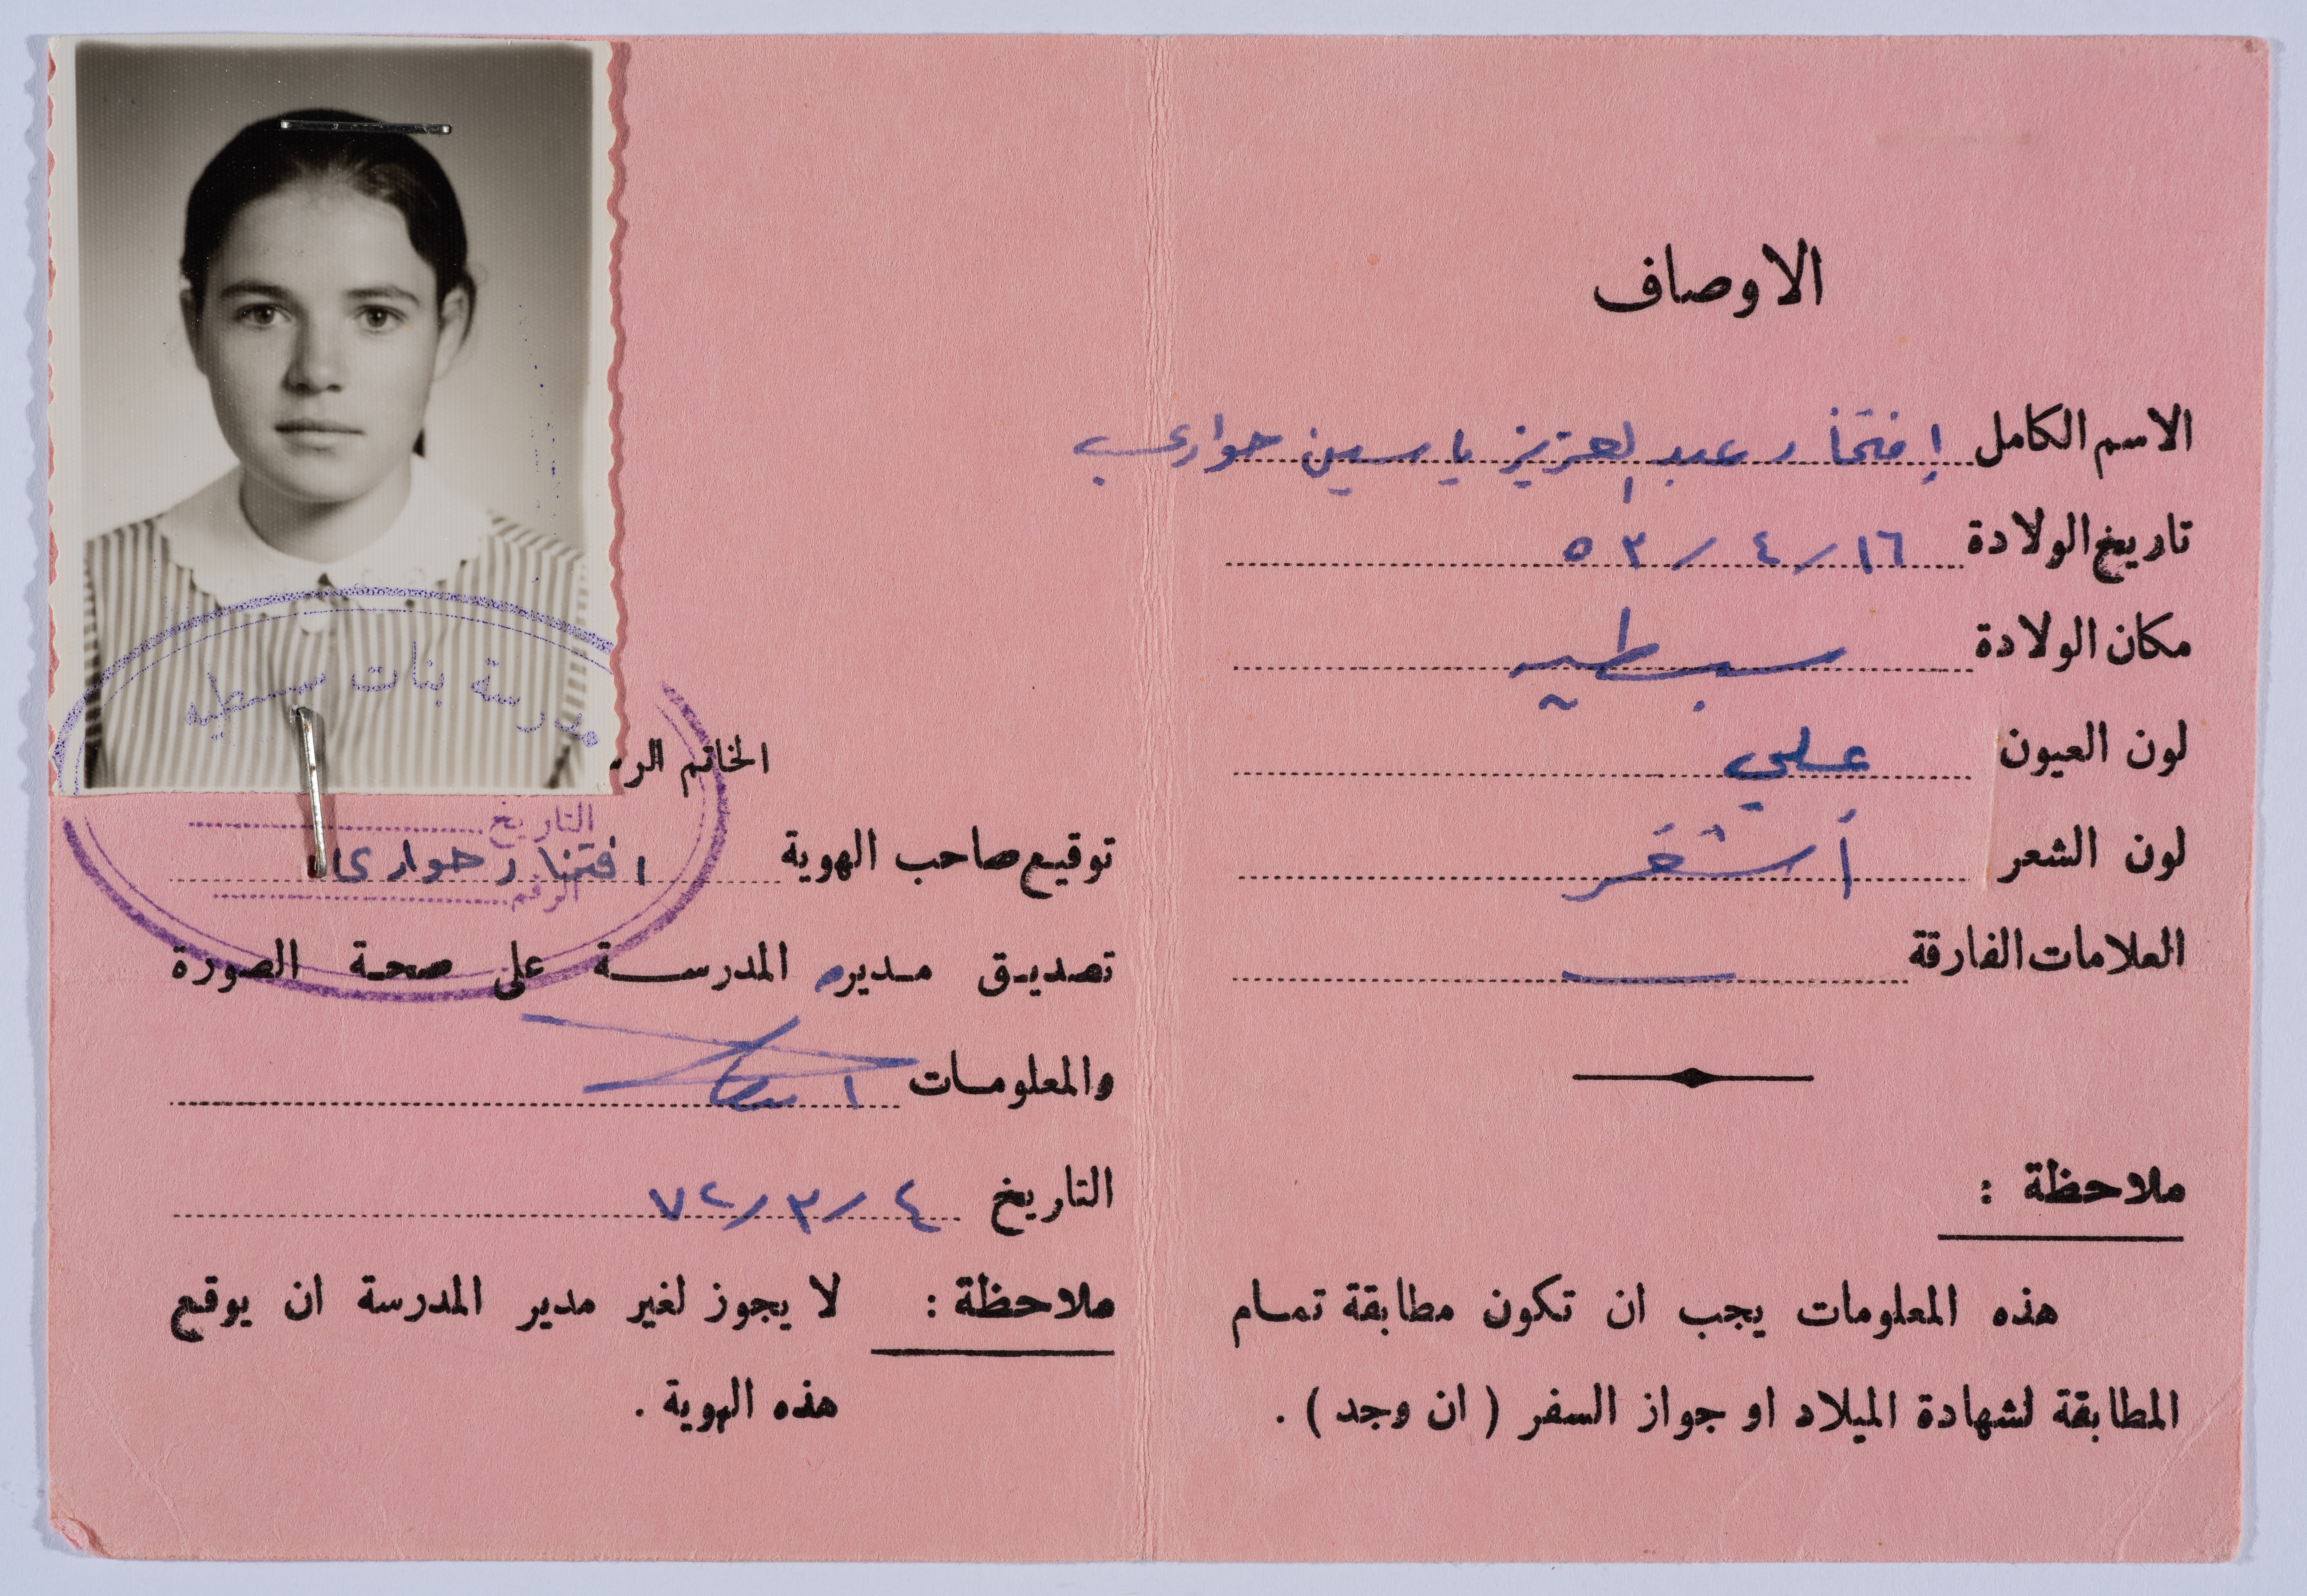 الاوصاف
الاسم الكامل إفتخار عبد العزيز ياسين حواري
تاريخ الولادة ١٦/٤/٥٣
مكان الولادة سبسطيه
لون العيون عسلي
لون الشعر أشقر
العلامات الفارقة ــ
ملاحظة :
هذه المعلومات يجب ان تكون مطابقة تمام
المطابقة لشهادة الميلاد او جواز السفر ( ان وجد ) .
مدرسة بنات سبسطيه
الخاتم الر
التاريخ
توقيع صاحب الهوية افتخار حواري
الرقم
تصديق مديره المدرسة على صحة الصورة
والمعلومات
التاريخ ٤/٣/٧٢
ملاحظة : لا يجوز لغير مدير المدرسة ان يوقع
هذه الهوية .